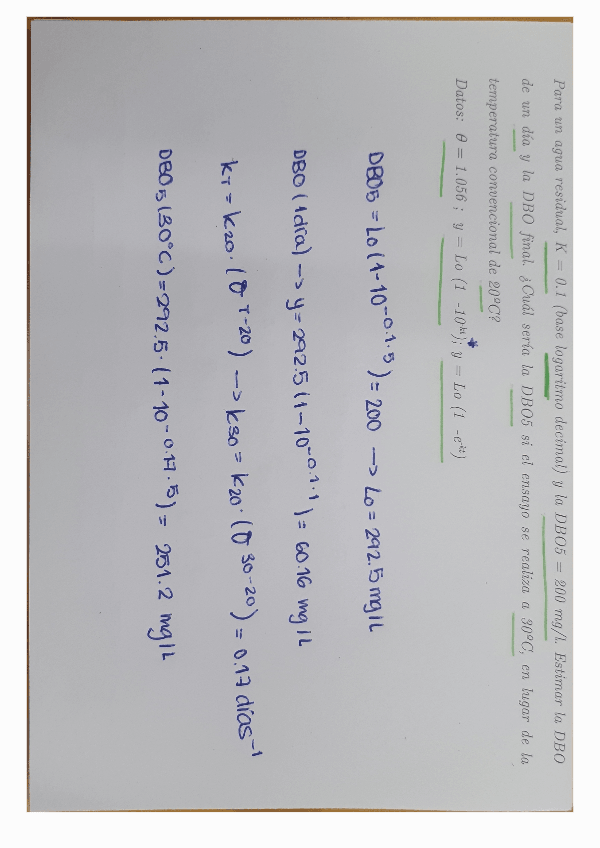 Para un agua residual, K = 0.1 (base logaritmo decimal) y la DBO5 = 200 mg/l. Estimar la DBO
de un día y la DBO final. ¿Cuál sería la DBO5 si el ensayo se realiza a 30ºC, en lugar de la
temperatura convencional de 20ºC?
Datos: θ = 1.056 ; y = Lo (1 -10^kt); y = Lo (1 -e^kt)
DBO5 = Lo (1-10^-0.1·5) = 200 → Lo = 292.5 mg/L
DBO (1día) → y = 292.5 (1-10^-0.1·1) = 60.16 mg/L
KT = K20 · (θ^T-20) → K30 = K20 · (θ^30-20) = 0.17 días^-1
DBO5 (30ºC) = 292.5 · (1-10^-0.17·5) = 251.2 mg/L